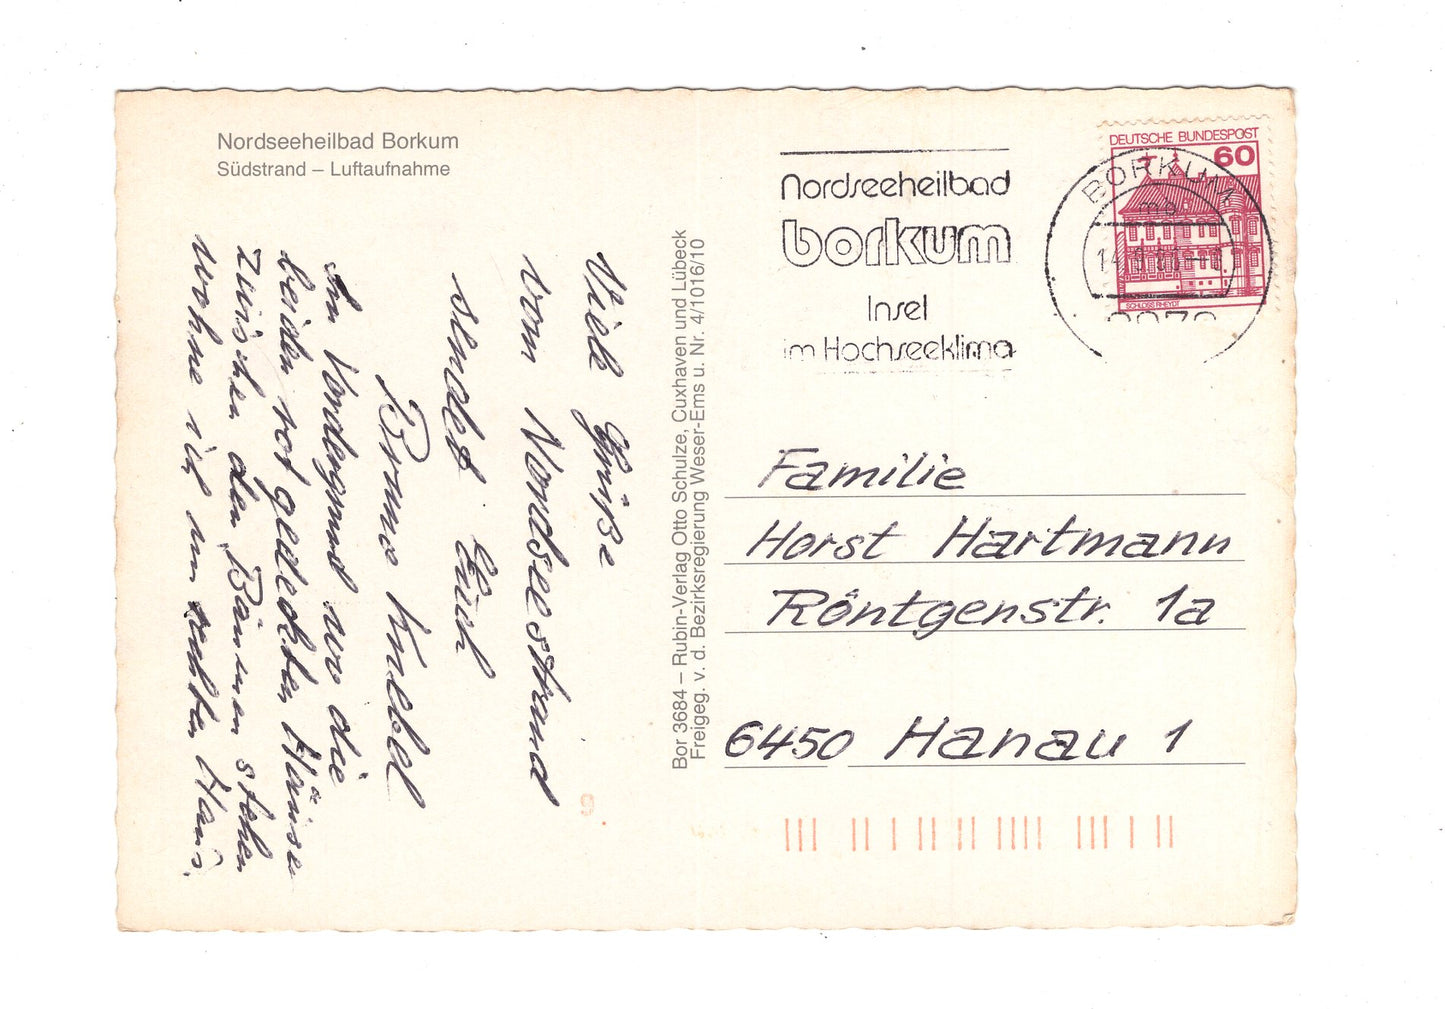 Nordseeheilbad Borkum
Südstrand – Luftaufnahme
Viele Grüße
vom Nordseestrand
sendet Euch
Bruno Knebel
Im Vordergrund wo die
beiden rot gedeckten Häuser
zwischen den Bäumen stehen
wohne ich im rechten Haus.
Bor 3684 – Rubin-Verlag Otto Schulze, Cuxhaven und Lübeck
Freigeg. v. d. Bezirksregierung Weser-Ems u. Nr. 4/1016/10
Nordseeheilbad
borkum
Insel
im Hochseeklima
DEUTSCHE BUNDESPOST
60
SCHLOSS RHEYDT
BORKUM 1
Familie
Horst Hartmann
Röntgenstr. 1a
6450 Hanau 1